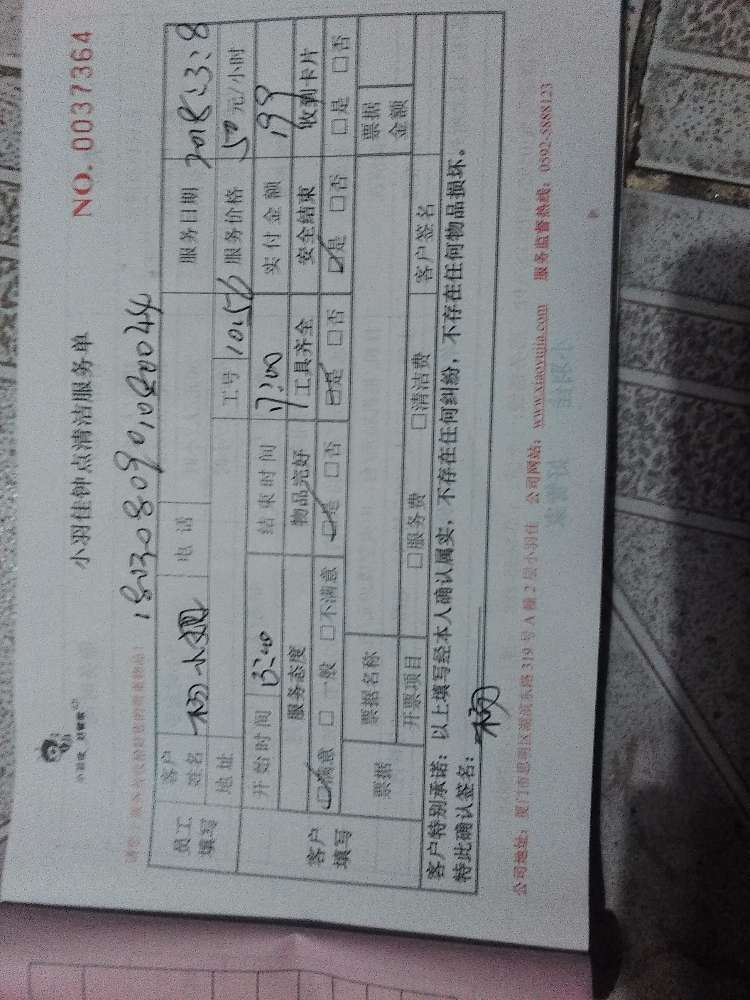 小羽佳 好管家
小羽佳钟点清洁服务单
NO. 0037364
员工填写
客户姓名 杨小姐 电话 服务日期 2018.3.8
地址 工号 10156 服务价格 50 元/小时
开始时间 13:00 结束时间 17:00 实付金额 199
客户填写
服务态度 物品完好 工具齐全 安全结束 收到卡片
☑满意 □一般 □不满意 ☑是 □否 ☑是 □否 ☑是 □否 □是 □否
票据 票据名称 票据金额
开票项目 □服务费 □清洁费 客户签名
客户特别承诺：以上填写经本人确认属实，不存在任何纠纷，不存在任何物品损坏。
特此确认签名： 杨
公司地址：厦门市思明区湖滨东路 319 号 A 幢 2 层小羽佳 公司网站：www.xiaoyujia.com 服务监督热线：0592-5888123